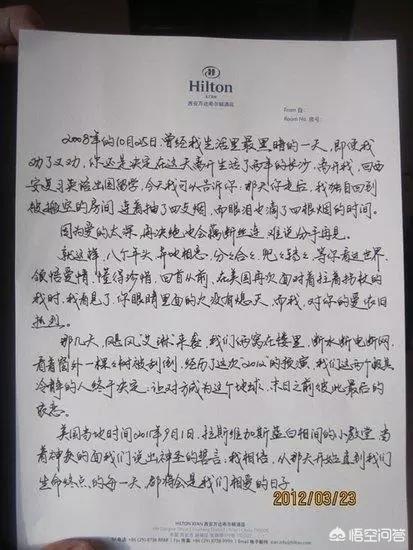 Hilton
XI'AN
西安万达希尔顿酒店
From 自:
Room No. 房号:
2008年的10月25日,曾经我生活里最黑暗的一天,即使我
劝了又劝,你还是决定在这天离开生活了两年的长沙,离开我,回西
安复习英语出国留学,今天我可以告诉你:那天你走后,我独自回到
被搬空的房间 连着抽了四支烟,而眼泪也滴了四根烟的时间。
因为爱的太深,再决绝也会藕断丝连,难说分手再见。
就这样,八个年头,异地相思,分分合合,兜兜转转,等你看这世界,
领悟爱情,懂得珍惜,回首从前,在美国再次面对着拄着拐杖的
我时,我看见了,你眼睛里面的火没有熄灭,而我,对你的爱依旧
热烈。
那几天,飓风"艾琳"来袭,我们俩窝在楼里,断水断电断网,
看着窗外一棵棵树被刮倒,经历了这次"2012"的预演,我们这两个极其
冷静的人终于决定:让对方成为这个地球,末日之前彼此最后的
家恋。
美国当地时间2011年9月1日,拉斯维加斯蓝白相间的小教堂,当
着神父的面我们说出神圣的誓言:我相信,从那天开始直到我们
生命终点的每一天,都将会是我们相爱的日子。
2012/03/23
HILTON XIAN 西安万达希尔顿酒店
悟空问答